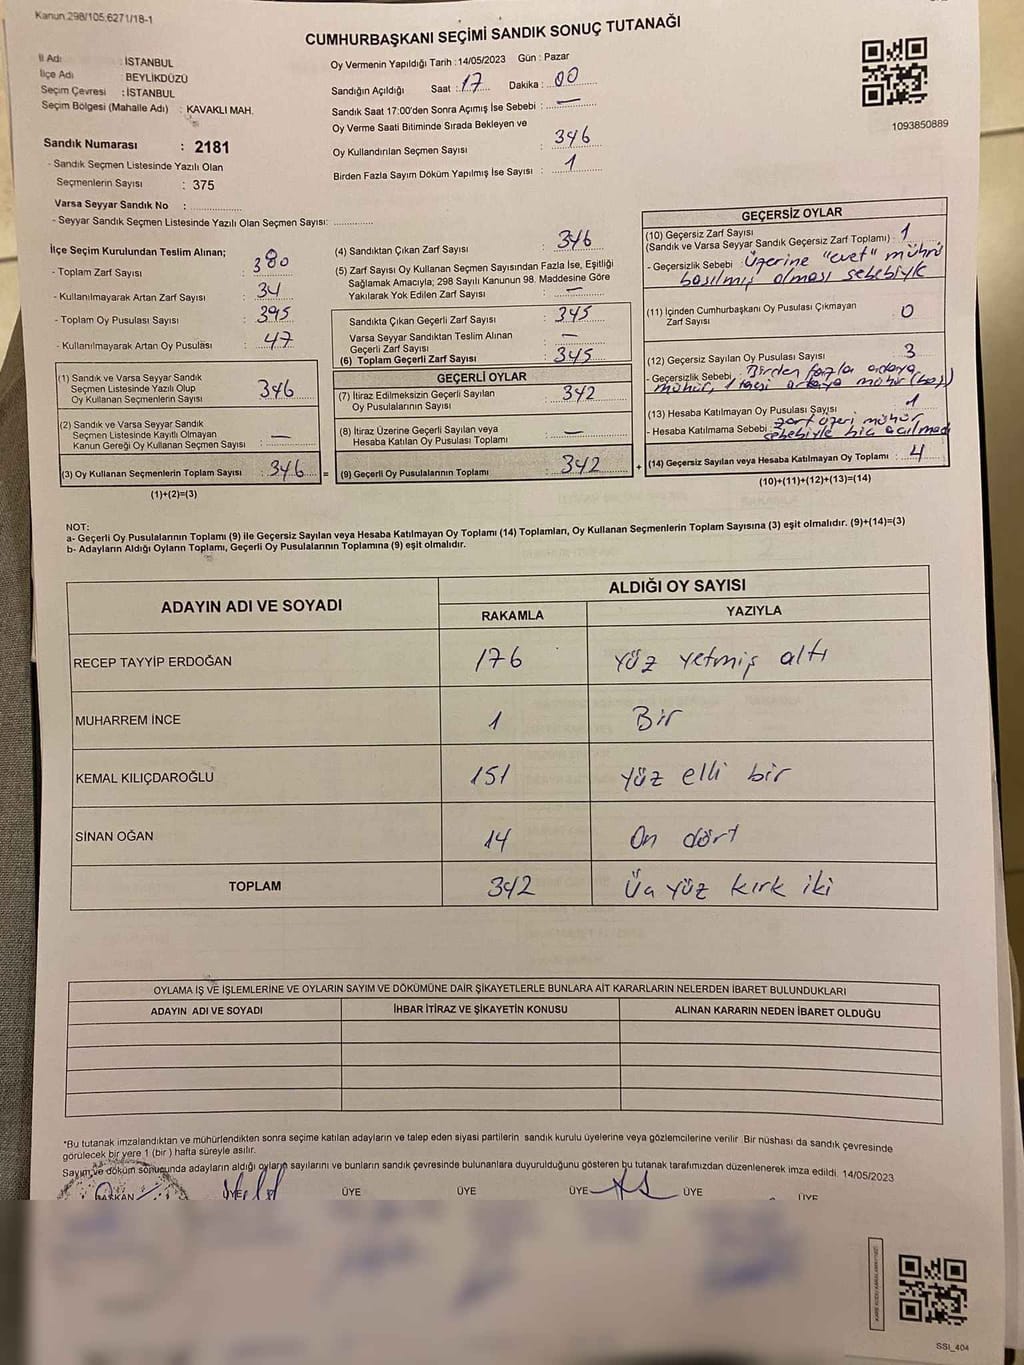 Kanun.298/105.6271/18-1
CUMHURBAŞKANI SEÇİMİ SANDIK SONUÇ TUTANAĞI
İl Adı : İSTANBUL
İlçe Adı : BEYLİKDÜZÜ
Seçim Çevresi : İSTANBUL
Seçim Bölgesi (Mahalle Adı) : KAVAKLI MAH.
Sandık Numarası : 2181
- Sandık Seçmen Listesinde Yazılı Olan
Seçmenlerin Sayısı : 375
Varsa Seyyar Sandık No :
- Seyyar Sandık Seçmen Listesinde Yazılı Olan Seçmen Sayısı:
Oy Vermenin Yapıldığı Tarih : 14/05/2023 Gün : Pazar
Sandığın Açıldığı Saat : 17 Dakika : 00
Sandık Saat 17:00'den Sonra Açımış İse Sebebi : —
Oy Verme Saati Bitiminde Sırada Bekleyen ve
Oy Kullandırılan Seçmen Sayısı : 346
Birden Fazla Sayım Döküm Yapılmış İse Sayısı : 1
1093850889
İlçe Seçim Kurulundan Teslim Alınan;
- Toplam Zarf Sayısı : 380
- Kullanılmayarak Artan Zarf Sayısı : 34
- Toplam Oy Pusulası Sayısı : 395
- Kullanılmayarak Artan Oy Pusulası : 47
(1) Sandık ve Varsa Seyyar Sandık
Seçmen Listesinde Yazılı Olup
Oy Kullanan Seçmenlerin Sayısı : 346
(2) Sandık ve Varsa Seyyar Sandık
Seçmen Listesinde Kayıtlı Olmayan
Kanun Gereği Oy Kullanan Seçmen Sayısı : —
(3) Oy Kullanan Seçmenlerin Toplam Sayısı : 346 =
(1)+(2)=(3)
(4) Sandıktan Çıkan Zarf Sayısı : 346
(5) Zarf Sayısı Oy Kullanan Seçmen Sayısından Fazla İse, Eşitliği
Sağlamak Amacıyla; 298 Sayılı Kanunun 98. Maddesine Göre
Yakılarak Yok Edilen Zarf Sayısı : —
Sandıkta Çıkan Geçerli Zarf Sayısı : 345
Varsa Seyyar Sandıktan Teslim Alınan
Geçerli Zarf Sayısı : —
(6) Toplam Geçerli Zarf Sayısı : 345
GEÇERLİ OYLAR
(7) İtiraz Edilmeksizin Geçerli Sayılan
Oy Pusulalarının Sayısı : 342
(8) İtiraz Üzerine Geçerli Sayılan veya
Hesaba Katılan Oy Pusulası Toplamı : —
(9) Geçerli Oy Pusulalarının Toplamı : 342 +
GEÇERSİZ OYLAR
(10) Geçersiz Zarf Sayısı
(Sandık ve Varsa Seyyar Sandık Geçersiz Zarf Toplamı) : 1
- Geçersizlik Sebebi : Üzerine "evet" mührü
basılmış olması sebebiyle
(11) İçinden Cumhurbaşkanı Oy Pusulası Çıkmayan
Zarf Sayısı : 0
(12) Geçersiz Sayılan Oy Pusulası Sayısı : 3
- Geçersizlik Sebebi : Birden fazla adaya
mühür, 1 arkaya mühür (boş)
(13) Hesaba Katılmayan Oy Pusulası Sayısı : 1
- Hesaba Katılmama Sebebi : zarf üzeri mühür
sebebiyle hiç açılmadı
(14) Geçersiz Sayılan veya Hesaba Katılmayan Oy Toplamı : 4
(10)+(11)+(12)+(13)=(14)
NOT:
a- Geçerli Oy Pusulalarının Toplamı (9) ile Geçersiz Sayılan veya Hesaba Katılmayan Oy Toplamı (14) Toplamları, Oy Kullanan Seçmenlerin Toplam Sayısına (3) eşit olmalıdır. (9)+(14)=(3)
b- Adayların Aldığı Oyların Toplamı, Geçerli Oy Pusulalarının Toplamına (9) eşit olmalıdır.
ADAYIN ADI VE SOYADI ALDIĞI OY SAYISI
RAKAMLA YAZIYLA
RECEP TAYYİP ERDOĞAN 176 Yüz yetmiş altı
MUHARREM İNCE 1 Bir
KEMAL KILIÇDAROĞLU 151 Yüz elli bir
SİNAN OĞAN 14 On dört
TOPLAM 342 Üç yüz kırk iki
OYLAMA İŞ VE İŞLEMLERİNE VE OYLARIN SAYIM VE DÖKÜMÜNE DAİR ŞİKAYETLERLE BUNLARA AİT KARARLARIN NELERDEN İBARET BULUNDUKLARI
ADAYIN ADI VE SOYADI İHBAR İTİRAZ VE ŞİKAYETİN KONUSU ALINAN KARARIN NEDEN İBARET OLDUĞU
*Bu tutanak imzalandıktan ve mühürlendikten sonra seçime katılan adayların ve talep eden siyasi partilerin sandık kurulu üyelerine veya gözlemcilerine verilir. Bir nüshası da sandık çevresinde
görülecek bir yere 1 (bir ) hafta süreyle asılır.
Sayım ve döküm sonucunda adayların aldığı oyların sayılarını ve bunların sandık çevresinde bulunanlara duyurulduğunu gösteren bu tutanak tarafımızdan düzenlenerek imza edildi. 14/05/2023
BAŞKAN ÜYE ÜYE ÜYE ÜYE ÜYE ÜYE
SSI_404